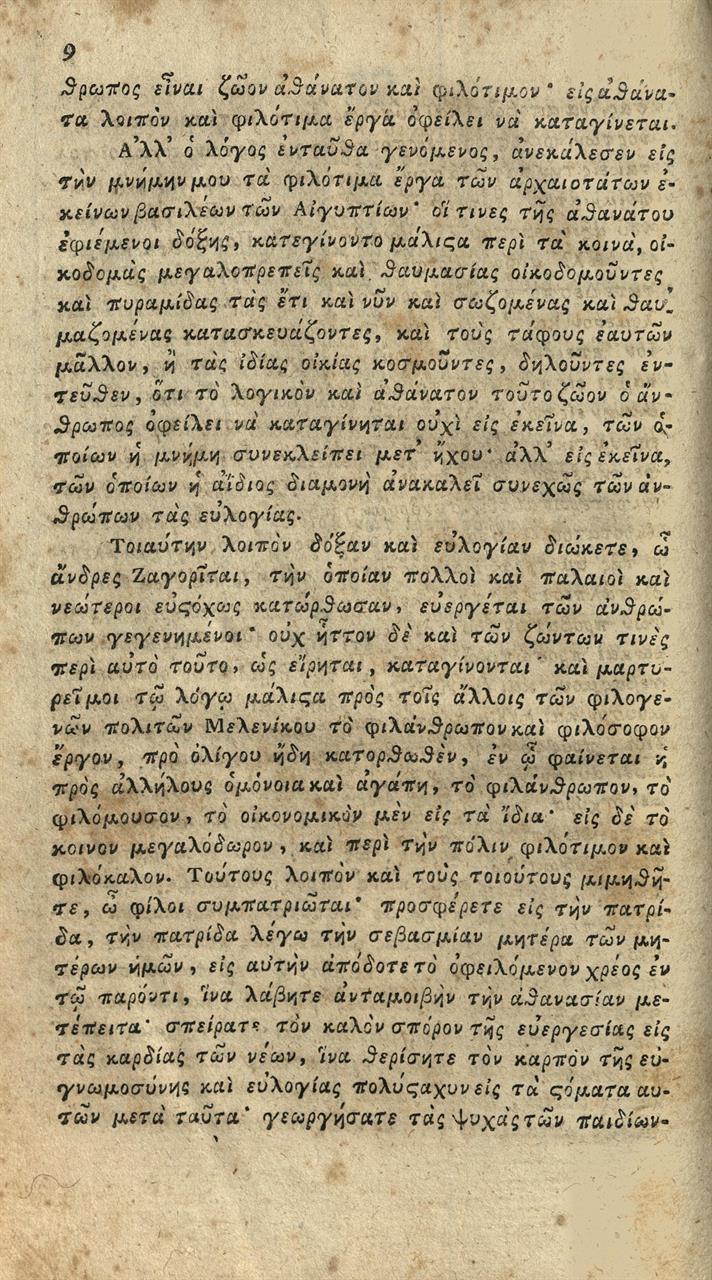 9
θρωπος εἶναι ζῶον ἀθάνατον καὶ φιλότιμον· εἰς ἀθάνα-
τα λοιπὸν καὶ φιλότιμα ἔργα ὀφείλει νὰ καταγίνεται.
Ἀλλ' ὁ λόγος ἐνταῦθα γενόμενος, ἀνεκάλεσεν εἰς
τὴν μνήμην μου τὰ φιλότιμα ἔργα τῶν ἀρχαιοτάτων ἐ-
κείνων βασιλέων τῶν Αἰγυπτίων· οἵ τινες τῆς ἀθανάτου
ἐφιέμενοι δόξης, κατεγίνοντο μάλιϛα περὶ τὰ κοινὰ, οἰ-
κοδομὰς μεγαλοπρεπεῖς καὶ θαυμασίας οἰκοδομοῦντες
καὶ πυραμίδας τὰς ἔτι καὶ νῦν καὶ σωζομένας καὶ θαυ-
μαζομένας κατασκευάζοντες, καὶ τοὺς τάφους ἑαυτῶν
μᾶλλον, ἢ τὰς ἰδίας οἰκίας κοσμοῦντες, δηλοῦντες ἐν-
τεῦθεν, ὅτι τὸ λογικὸν καὶ ἀθάνατον τοῦτο ζῶον ὁ ἄν-
θρωπος ὀφείλει νὰ καταγίνηται οὐχὶ εἰς ἐκεῖνα, τῶν ὁ-
ποίων ἡ μνήμη συνεκλείπει μετ' ἤχου· ἀλλ' εἰς ἐκεῖνα,
τῶν ὁποίων ἡ ἀΐδιος διαμονὴ ἀνακαλεῖ συνεχῶς τῶν ἀν-
θρώπων τὰς εὐλογίας.
Τοιαύτην λοιπὸν δόξαν καὶ εὐλογίαν διώκετε, ὦ
ἄνδρες Ζαγορῖται, τὴν ὁποίαν πολλοὶ καὶ παλαιοὶ καὶ
νεώτεροι εὐϛόχως κατώρθωσαν, εὐεργέται τῶν ἀνθρώ-
πων γεγενημένοι· οὐχ ἧττον δὲ καὶ τῶν ζώντων τινὲς
περὶ αὐτὸ τοῦτο, ὡς εἴρηται, καταγίνονται· καὶ μαρτυ-
ρεῖ μοι τῷ λόγῳ μάλιϛα πρὸς τοῖς ἄλλοις τῶν φιλογε-
νῶν πολιτῶν Μελενίκου τὸ φιλάνθρωπον καὶ φιλόσοφον
ἔργον, πρὸ ὀλίγου ἤδη κατορθωθὲν, ἐν ᾧ φαίνεται ἡ
πρὸς ἀλλήλους ὁμόνοια καὶ ἀγάπη, τὸ φιλάνθρωπον, τὸ
φιλόμουσον, τὸ οἰκονομικὸν μὲν εἰς τὰ ἴδια· εἰς δὲ τὸ
κοινον μεγαλόδωρον, καὶ περὶ τὴν πόλιν φιλότιμον καὶ
φιλόκαλον. Τούτους λοιπὸν καὶ τοὺς τοιούτους μιμηθῆ-
τε, ὦ φίλοι συμπατριῶται· προσφέρετε εἰς τὴν πατρί-
δα, τὴν πατρίδα λέγω τὴν σεβασμίαν μητέρα τῶν μη-
τέρων ἡμῶν, εἰς αὐτὴν ἀπόδοτε τὸ ὀφειλόμενον χρέος ἐν
τῷ παρόντι, ἵνα λάβητε ἀνταμοιβὴν τὴν ἀθανασίαν με-
τέπειτα· σπείρατε τὸν καλὸν σπόρον τῆς εὐεργεσίας εἰς
τὰς καρδίας τῶν νέων, ἵνα θερίσητε τὸν καρπὸν τῆς εὐ-
γνωμοσύνης καὶ εὐλογίας πολύϛαχυν εἰς τὰ ϛόματα αυ-
τῶν μετὰ ταῦτα· γεωργήσατε τὰς ψυχὰς τῶν παιδίων-